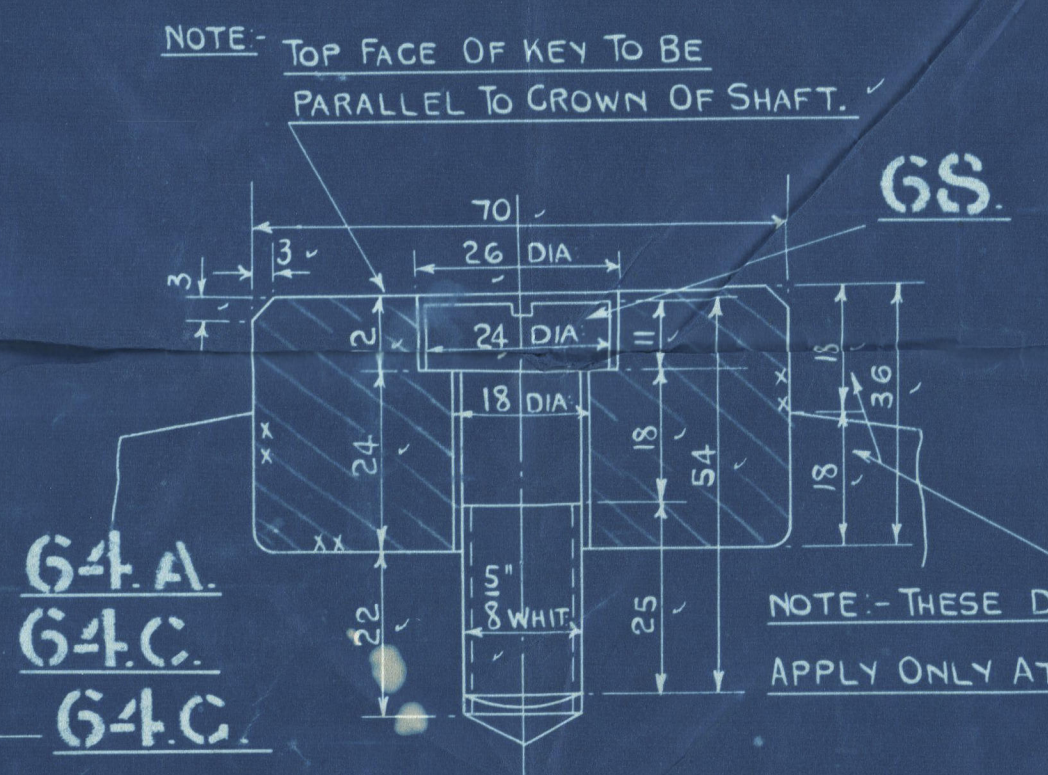 NOTE:- TOP FACE OF KEY TO BE
PARALLEL TO CROWN OF SHAFT.
6S.
70
26 DIA
3
3
24 DIA
2
11
18 DIA.
18
36
18
24
18
54
64.A.
64.C.
64.C.
5"
8 WHIT.
22
25
NOTE:- THESE D
APPLY ONLY AT